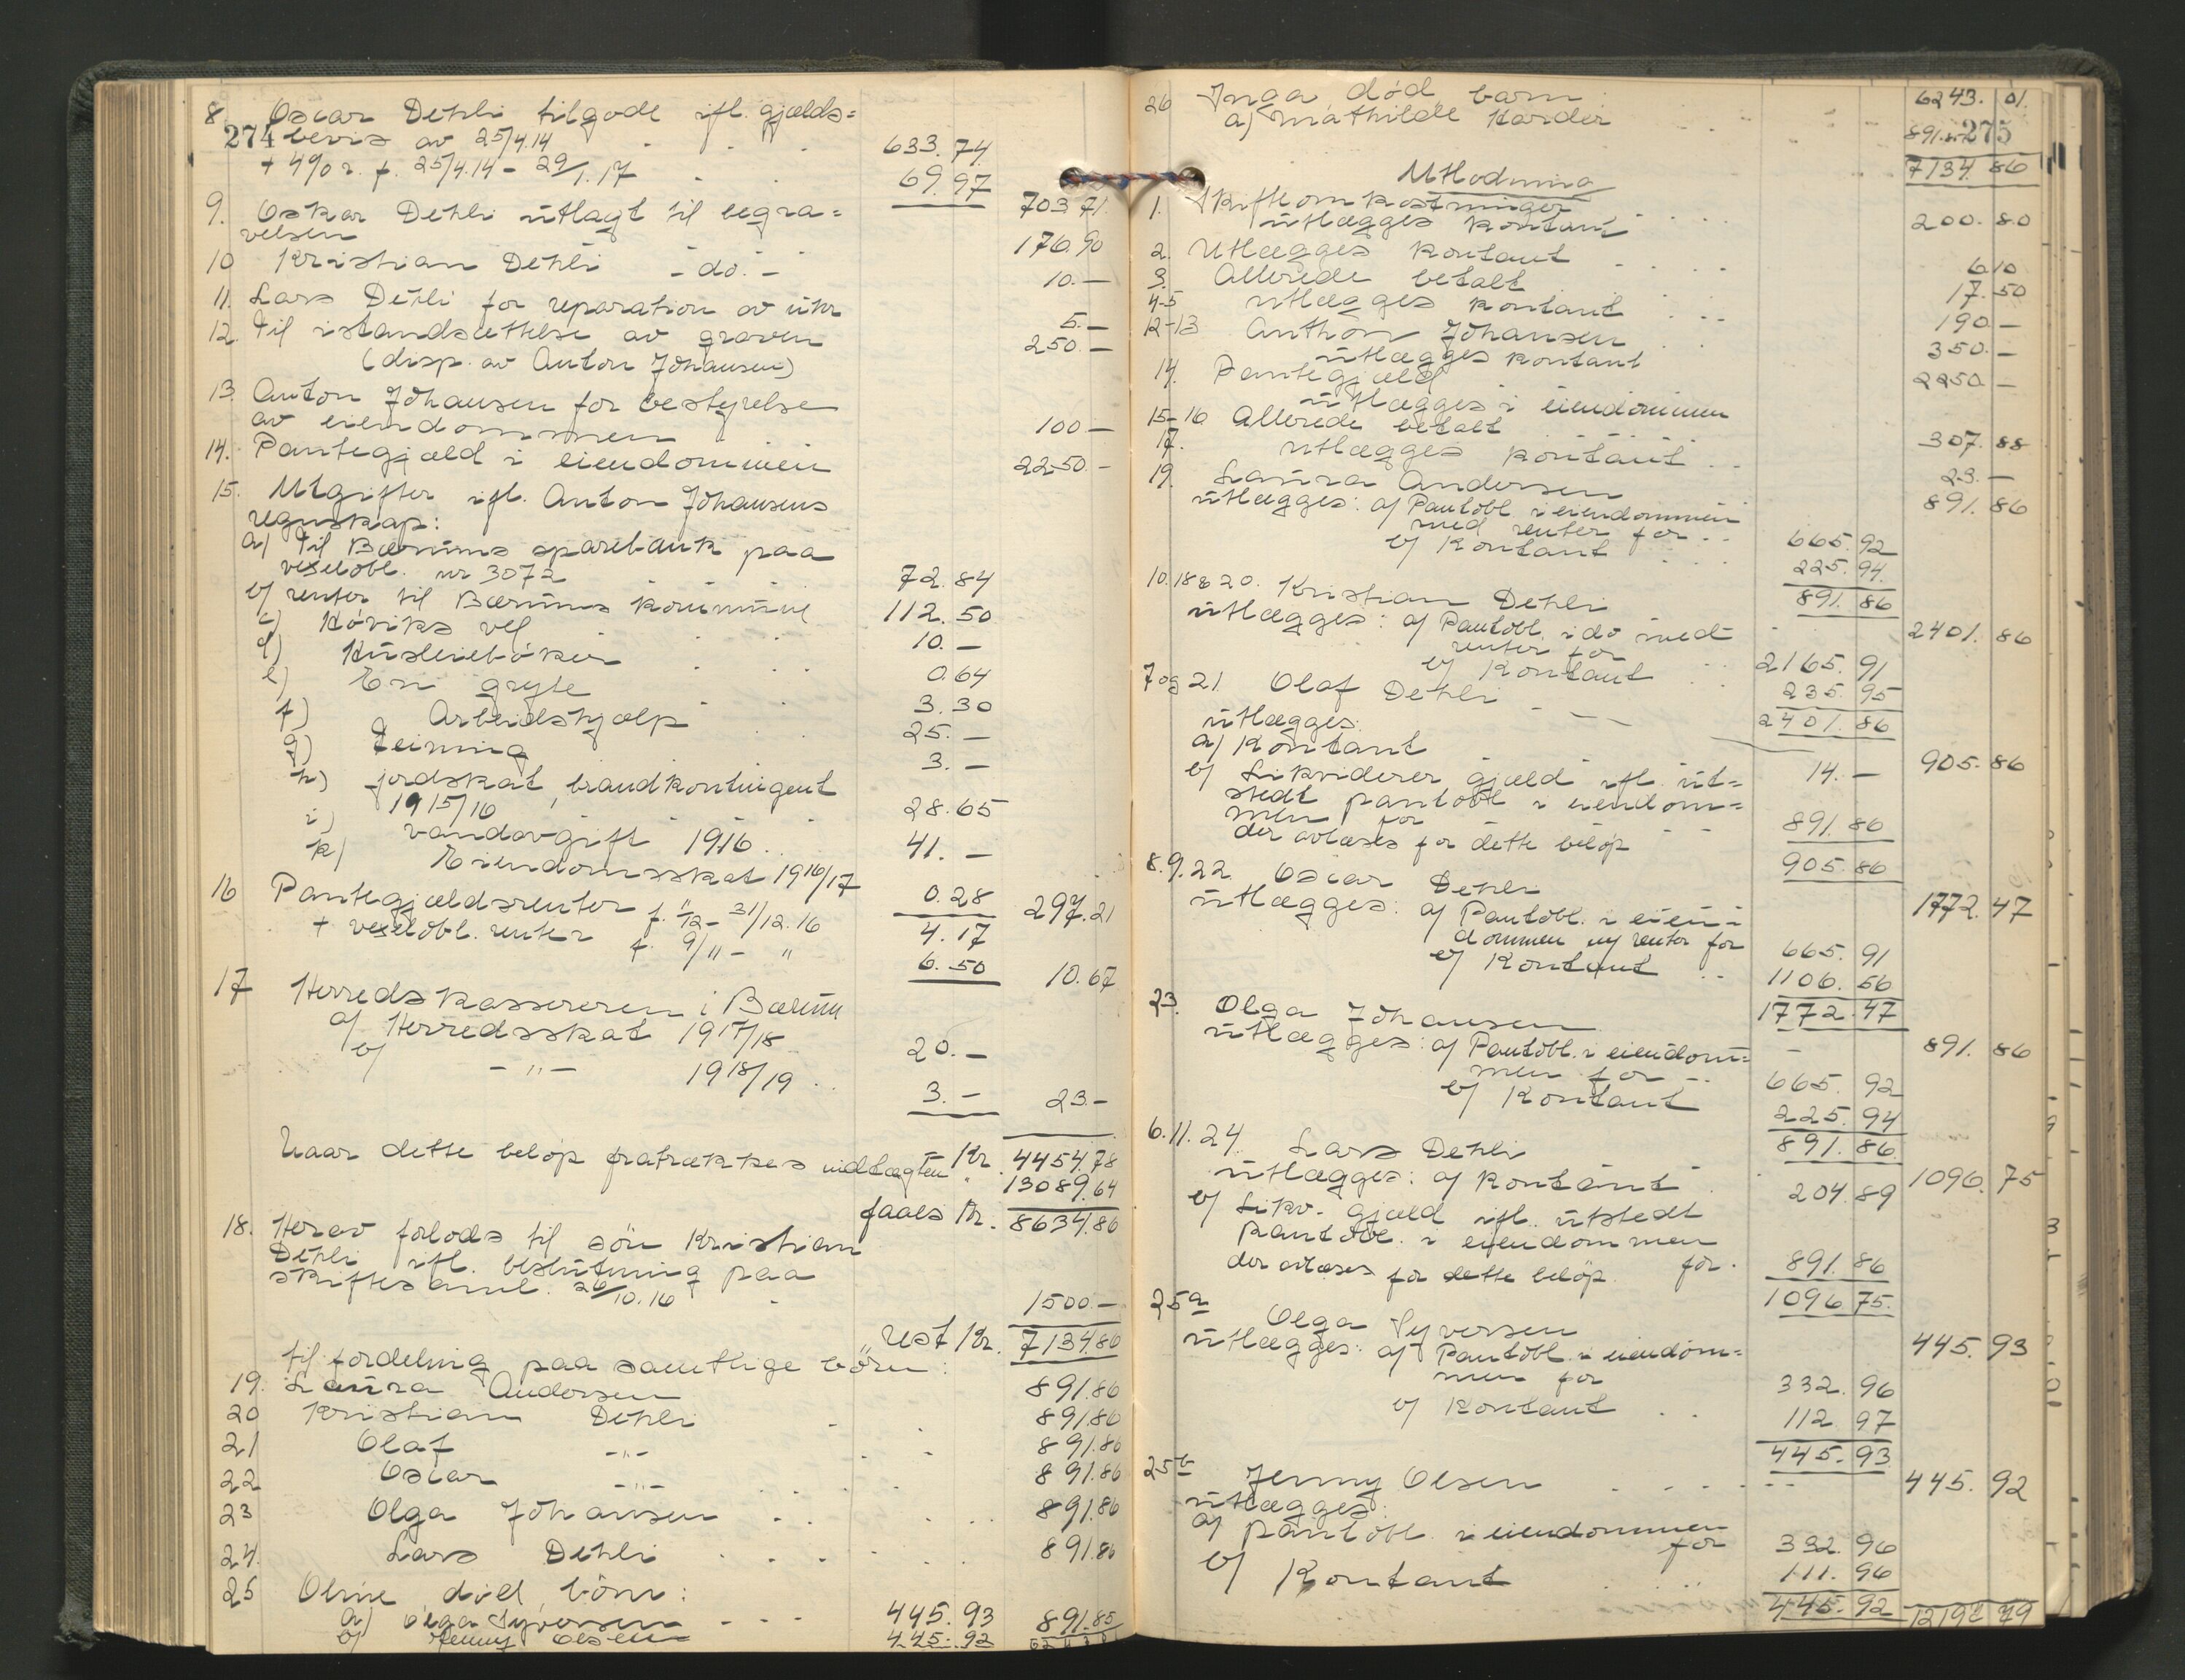 8. Oscar Dehli tilgode ifl. gjælds=
274 bevis av 25/4.14 . . . 633.74
+ 4% r. f. 25/4.14 - 29/1.17 . . 69.97 703 71
9. Oskar Dehli utlagt til begra=
velsen 176.90
10 Kristian Dehli - do. - 10.—
11. Lars Dehli for reparation av uhr 5.—
12. Til istandsættelse av graven 250.—
(disp. av Anton Johansen)
13. Anton Johansen for bestyrelse
av eiendommen 100—
14. Pantegjæld i eiendommen 2250.-
15. Utgifter ifl. Anton Johansens
regnskap:
a) Til Bærums sparebank paa
vexelobl. nr 3072 72.84
b) renter til Bærums kommune 112.50
c) Høviks vel 10.—
d) Husleiebøker 0.64
e) En gryte 3.30
f) Arbeidshjælp 25.—
g) Leining 3.—
h) jordskat, brandkontingent
1915/16 28.65
i) vandavgift 1916 41.—
k) Eiendomsskat 1916/17 0.28 297.21
16 Pantegjældsrenter f. "/12 - 31/12.16 4.17
+ vexelobl. renter f. 9/11 - " 6.50 10.67
17 Herredskassereren i Bærum
a) Herredsskat 1917/18 20.—
b) - " - 1918/19 . . 3.— 23-
Kr. 4454.78
Naar dette beløp fratrækkes indtægten " 13089.64
faaes Kr. 8634.86
18. Herav forlods til søn Kristian
Dehli ifl. beslutning paa
skiftesaml. 26/10.16 1500.—
Rest Kr. 7134.86
til fordeling paa samtlige børn:
19. Laura Andersen 891.86
20 Kristian Dehli 891.86
21 Olaf -"- 891.86
22 Oscar -"- 891.86
23 Olga Johansen 891.86
24. Lars Dehli 891.86
25 Oline, død, børn:
a) Olga Syversen - - - 445.93 891.85
b) Jenny Olsen 445.92 6243 01
26 Inga, død, barn 6243. 01.
a) Mathilde Harder 891.85 275
7134. 86
Utlodning
1. Skifteomkostninger
utlægges kontant 200. 80
2. Utlægges kontant 6 10
3. Allerede betalt 17. 50
4-5 utlægges kontant 190 —
12-13 Anthon Johansen
utlægges kontant 350. —
14. Pantegjæld 2250 —
utlægges i eiendommen
15-16 Allerede betalt 307. 88
17. utlægges kontant 23. —
19. Laura Andersen 891. 86
utlægges: a) Pantobl. i eiendommen
med renter for 665. 92
b) Kontant 225. 94.
891. 86
10.18 & 20. Kristian Dehli 2401. 86
utlægges: a) Pantobl. i do med
renter for 2165. 91
b) Kontant 235. 95
2401. 86
7 og 21 Olaf Dehli 905. 86
utlægges:
a) Kontant 14. —
b) Likviderer gjæld ifl. ut=
stedt pantobl. i eiendom=
men for 891. 86
der avlæses for dette beløp
905. 86
8.9.22. Oscar Dehli 1772. 47
utlægges: a) Pantobl. i eien=
dommen m/ renter for 665. 91
b) Kontant 1106. 56
1772. 47
23. Olga Johansen 891. 86
utlægges: a) Pantobl. i eiendom=
men for 665. 92
b) Kontant 225. 94
891. 86
6.11.24. Lars Dehli 1096. 75
utlægges: a) Kontant 204. 89
b) Likv. gjæld ifl. utstedt
pantobl. i eiendommen
der avlæses for dette beløp for 891. 86
1096. 75.
25a Olga Syversen 445. 93
utlægges: a) Pantobl. i eiendom=
men for 332. 96
b) Kontant 112 97
445. 93
25b Jenny Olsen 445. 92
utlægges:
a) pantobl. i eiendommen
for 332. 96
b) Kontant 111. 96
445. 92